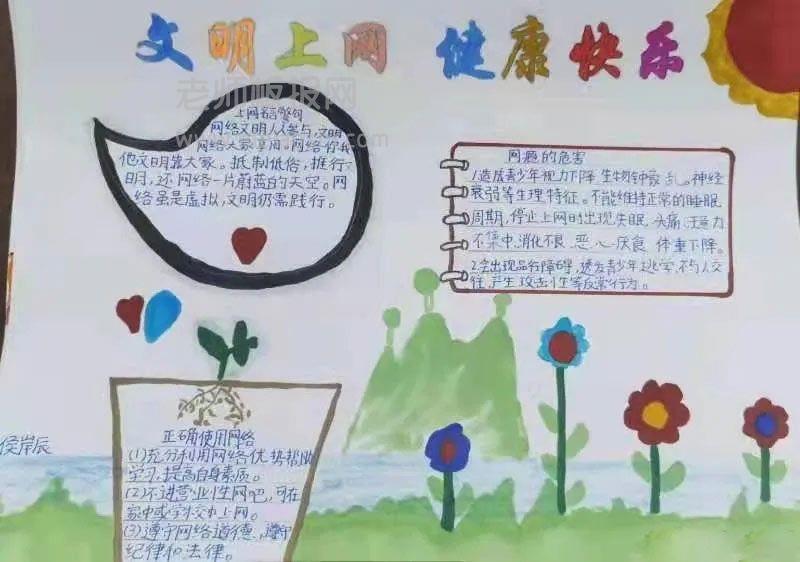 文明上网 健康快乐
老师板报网
上网名言警句
网络文明人人参与,文明
网络大家享用。网络你我
他文明靠大家。抵制低俗,推行文
明,还网络一片蔚蓝的天空。网
络虽是虚拟,文明仍需践行。
网瘾的危害
1.造成青少年视力下降 生物钟紊乱。神经
衰弱等生理特征。不能维持正常的睡眠
周期,停止上网时出现失眠、头痛、注意力
不集中、消化不良、恶心厌食 体重下降。
2.会出现品行障碍,诱发青少年逃学,不与人交
往,产生攻击性等反常行为。
侯岸辰
正确使用网络
(1)充分利用网络优势帮助
学习,提高自身素质。
(2)不进营业性网吧,可在
家中或学校中上网。
(3)遵守网络道德,遵守
纪律和法律。